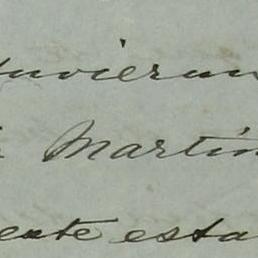 tuvieran
Martin
ente esta